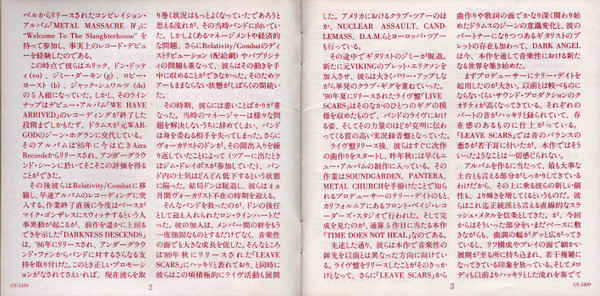 ベルからリリースされたコンピレイション・
アルバム「METAL MASSACRE Ⅳ」に
"Welcome To The Slaughterhouse" を
持って参加し、事実上のレコード・デビュ
ーを経験したのである。
この時点で彼らはエリック、ドン・ドッテ
ィ(vo)、ジミー・ダーキン(g)、ロビー・
ロースト(b)、ジャック・シュワルツ(ds)
の5人組になっていた。しかし、そのライン
ナップはデビュー・アルバム「WE HAVE
ARRIVED」のレコーディングが終了した
段階までしかもたず、ドラムスが元WAR-
GODのジーン・ホグランに交代している。
そのアルバムは'85年に今は亡きAzra
Recordsからリリースされ、アンダーグラウ
ンド・シーンに於いてそこそこの評価を得る
ことができた。
その後彼らはRelativity/Combatに移
籍し、早速アルバムのレコーディングに突
入する。作業終了直後に今度はベースが
マイク・ゴンザレスにスウィッチするという人
事異動が起こるが、前作を遥かに上回るで
きを示した「DARKNESS DESCENDS」
は、'86年にリリースされ、アンダーグラウ
ンド・ファンからバンドに対するさらなる支
持を取り付けた。このとき正しいプロモーシ
ョンがなされてさえいれば、現在彼らを取
り巻く状況はもっとよくなっていたであろうと
思える流れが、その当時バンドに向いていた。
しかしよくあるマネージメントや経済的
な問題、さらにRelativity/Combatのディ
ストリビューション(配給網)やパブリシテ
ィの問題も重なって、彼らはその動きを手
中に収めることができなかった。そのためツ
アーもままならない状態がしばらくの間続
いた。
その時期、彼らには悪いことばかりが重
なった。当時のマネージャーは様々な問題
を解決しないうちに辞めてしまい、バンド
は身を委ねる相手を失ってしまった。さらに
ヴォーカリストのドンが、その間出入りを繰
り返していたことによって
団の士気はどんどん低下するという状態
に陥った。結局ドンは脱退し、彼らは4ヵ
月間ヴォーカリスト不在の時期を迎える。
そんなバンドを救ったのが、ドンの後任と
して迎え入れられたロン・ラインハートだ
った。彼の加入は、メンバー間の絆をもう
一度強固なものとするだけでなく、音楽性
の面でも大きな成長を促した。そんなところ
は'89年秋にリリースされた「LEAVE
SCARS」にハッキリと表れており、と同時に
彼らはこの頃積極的にライヴ活動も展開
2
CS 5439
した。アメリカにおけるクラブ・ツアーのほ
か、NUCLEAR ASSAULT、CAND-
LEMASS、D.A.M.らとヨーロッパ・ツアー
も行っている。
その途中でギタリストのジミーが脱退。
新たに元VIKINGのブレット・エリクソンを
加入させ、彼らは大きくパワー・アップしなが
ら華麗のクラブ・ギグを重ねていった。
'90年夏にリリースされたライヴ盤「LIVE
SCARS」はそのなかのひとつのギグの模
様を収めたもので、バンドのライヴにおけ
る姿、そしてその力量のほどが克明に伝わ
って来る質の高い実況録音盤となっていた。
ライヴ盤リリース後、彼らはすぐに次作
の曲作りをスタートし、昨年秋には早くもニ
ュー・アルバムの制作に入っている。その
作業はSOUNDGARDEN、PANTERA、
METAL CHURCHを手掛けたことで知ら
れるプロデューサーのテリー・デイトのもと
カリフォルニアにあるフロント・ページ・レコ
ーダーズ・スタジオで行われた。そして完
成を見たのが、通算5作目に当たる本作
「TIME DOES NOT HEAL」なのである。
先述した通り、彼らは本作で音楽性の
鉾先を以前とは異なった方向に向けてい
る。ライヴ盤をリリースしたことがそのきっか
けとなって、さらに「LEAVE SCARS」から
曲作りや歌詞の面でかなり深く関わり始
めたドラムスのジーンの意識変化と、彼の
パートナーになりつつあるギタリストのブ
レットの存在も加わって、DARK ANGEL
は今、本作を通して音楽性における新た
なる世界を築き始めた。
まずプロデューサーにテリー・デイトを
起用したのが大きい。以前とは較べものに
ならないくらいサウンド・プロダクションのク
オリティが高くなってきている。それぞれの
パートの音がハッキリと録られていて、存
在感のあるものに仕上がっている。
「LEAVE SCARS」では音のバランスの
悪さが若干耳に付いたが、本作ではそう
いったようなことは一切感じられない。
アルバムを作るに当たって、最も大事な
土台とも言える部分がしっかりしてきている
わけだから、その上に乗る彼らの新しい個
性も、より輝きを増してくるというものだ。彼
らはこれまで正統派とも言える直線的なスラ
ッシュ・メタルを信条としてきた。が、今回
からはそういった部分をいくぶんベースに敷
きながら、曲調の幅がグッと広がって来
ているし、リフ構成やプレイの面で細かい
展開が至る所に持ち込まれ、若干複雑に
なってきている印象を放っている。そしてメロ
ディも以前よりハッキリとした流れを奏でて
3
CS 5439